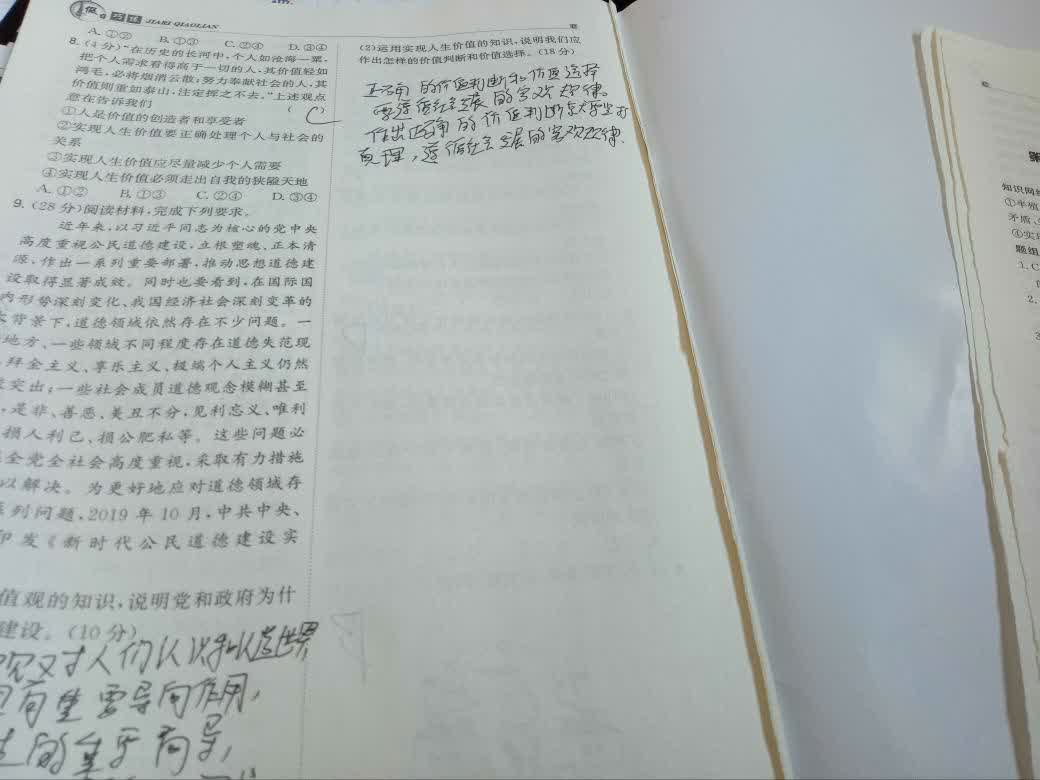 假日巧练 JIARI QIAOLIAN
A. ①② B. ①③ C. ②④ D. ③④
8. (4分)“在历史的长河中,个人如沧海一粟,
把个人需求看得高于一切的人,其价值轻如
鸿毛,必将烟消云散;努力奉献社会的人,其
价值则重如泰山,注定挥之不去。”上述观点
意在告诉我们 ( C
①人是价值的创造者和享受者
②实现人生价值要正确处理个人与社会的
关系
③实现人生价值应尽量减少个人需要
④实现人生价值必须走出自我的狭隘天地
A. ①② B. ①③ C. ②④ D. ③④
9. (28分)阅读材料,完成下列要求。
近年来,以习近平同志为核心的党中央
高度重视公民道德建设,立根塑魂、正本清
源,作出一系列重要部署,推动思想道德建
设取得显著成效。同时也要看到,在国际国
内形势深刻变化、我国经济社会深刻变革的
大背景下,道德领域依然存在不少问题。一
地方、一些领域不同程度存在道德失范现
拜金主义、享乐主义、极端个人主义仍然
突出;一些社会成员道德观念模糊甚至
,是非、善恶、美丑不分,见利忘义、唯利
损人利己、损公肥私等。这些问题必
全党全社会高度重视,采取有力措施
以解决。为更好地应对道德领域存
系列问题,2019年10月,中共中央、
印发《新时代公民道德建设实
值观的知识,说明党和政府为什
建设。(10分)
观对人们认识和改造世界
具有重要导向作用,
的重要向导,
(2)运用实现人生价值的知识,说明我们应
作出怎样的价值判断和价值选择。(18分)
正确的价值判断和价值选择
要遵循社会发展的客观规律。
作出正确的价值判断
真理,遵循社会发展的客观规律.
第
知识网络
①半殖
矛盾、
④实
题组
1. C
2.
3